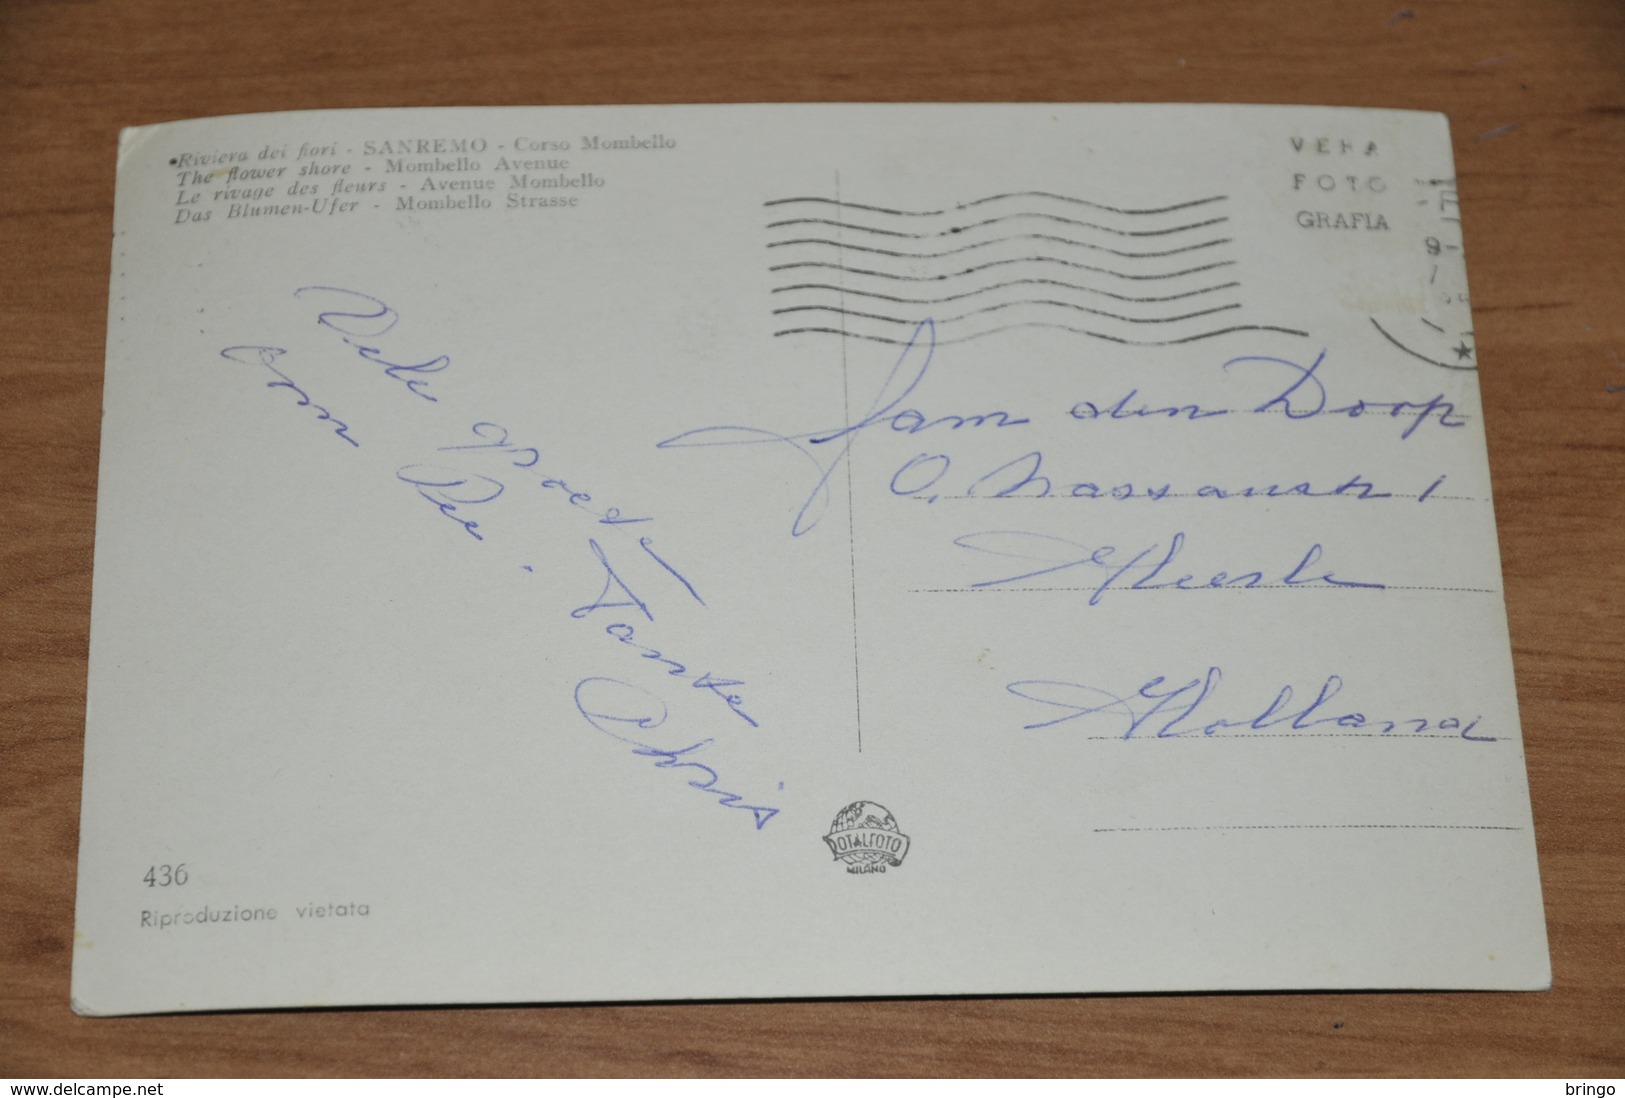 Riviera dei fiori - SANREMO - Corso Mombello
The flower shore - Mombello Avenue
Le rivage des fleurs - Avenue Mombello
Das Blumen-Ufer - Mombello Strasse
VERA
FOTO
GRAFIA
Vele groeten
om Piu. Tante
Chris
Fam den Doop
O. Nassaustr 1
Heerle
Holland
ROTALFOTO
MILANO
436
Riproduzione vietata
www.delcampe.net
bringo